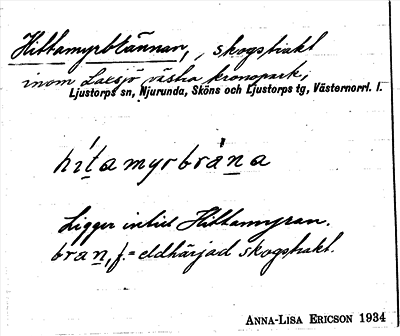 Hittamyrbrännan, skogstrakt
inom Laxsjö västra kronopark,
Ljustorps sn, Njurunda, Sköns och Ljustorps tg, Västernorrl. l.
hítamyrbràna
Ligger intill Hittamyran.
bran, f. = eldhärjad skogstrakt.
ANNA-LISA ERICSON 1934